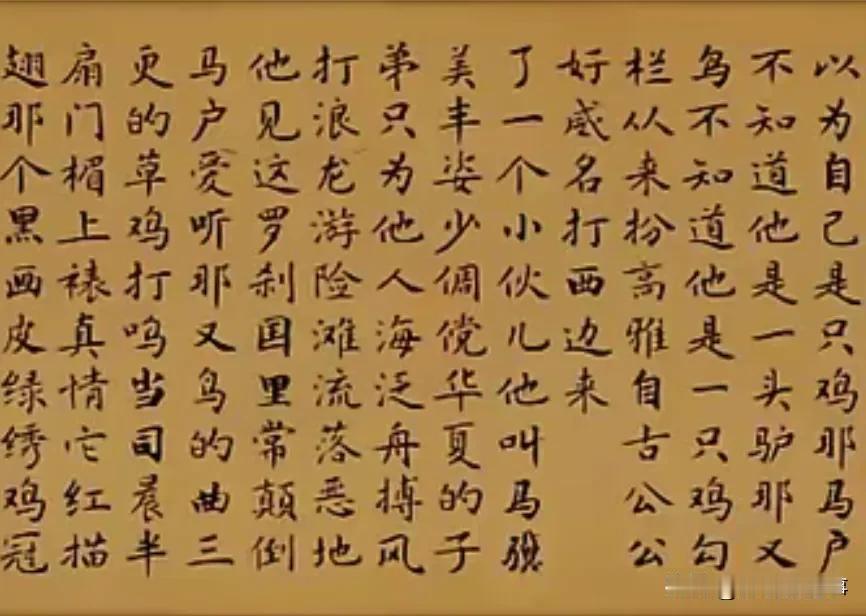 以为自己是只鸡那马户
不知道他是一头驴那又
鸟不知道他是一只鸡勾
栏从来扮高雅自古公公
好威名打西边来
了一个小伙儿他叫马骥
美丰姿少倜傥华夏的子
弟只为他人海泛舟搏风
打浪龙游险滩流落恶地
他见这罗刹国里常颠倒
马户爱听那又鸟的曲三
更的草鸡打鸣当司晨半
扇门楣上裱真情它红描
翅那个黑画皮绿绣鸡冠